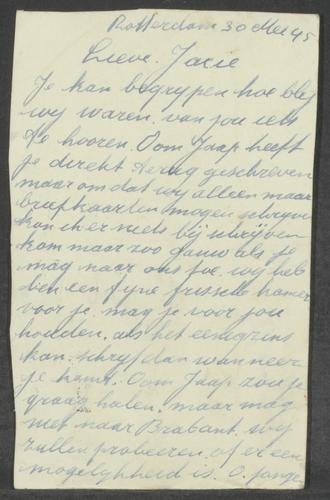 Rotterdam 30 Mei 45
Lieve. Jacie
Je kan begrypen hoe bly
wy waren. van jou iets
te hooren. Oom Jaap heeft
je direkt terug geschreven
maar omdat wy alleen maar
briefkaarten mogen schryven
kon ik er niets by schryven
kom maar zoo gauw als je
mag naar ons toe. wy heb
ben een fyne frissche kamer
voor je. mag je voor jou
houden. als het eenigzins
kan. schryf dan wanneer
je komt. Oom Jaap zou je
graag halen. maar mag
niet naar Brabant. wy
zullen probeeren of er een
mogelykheid is. O. jonge